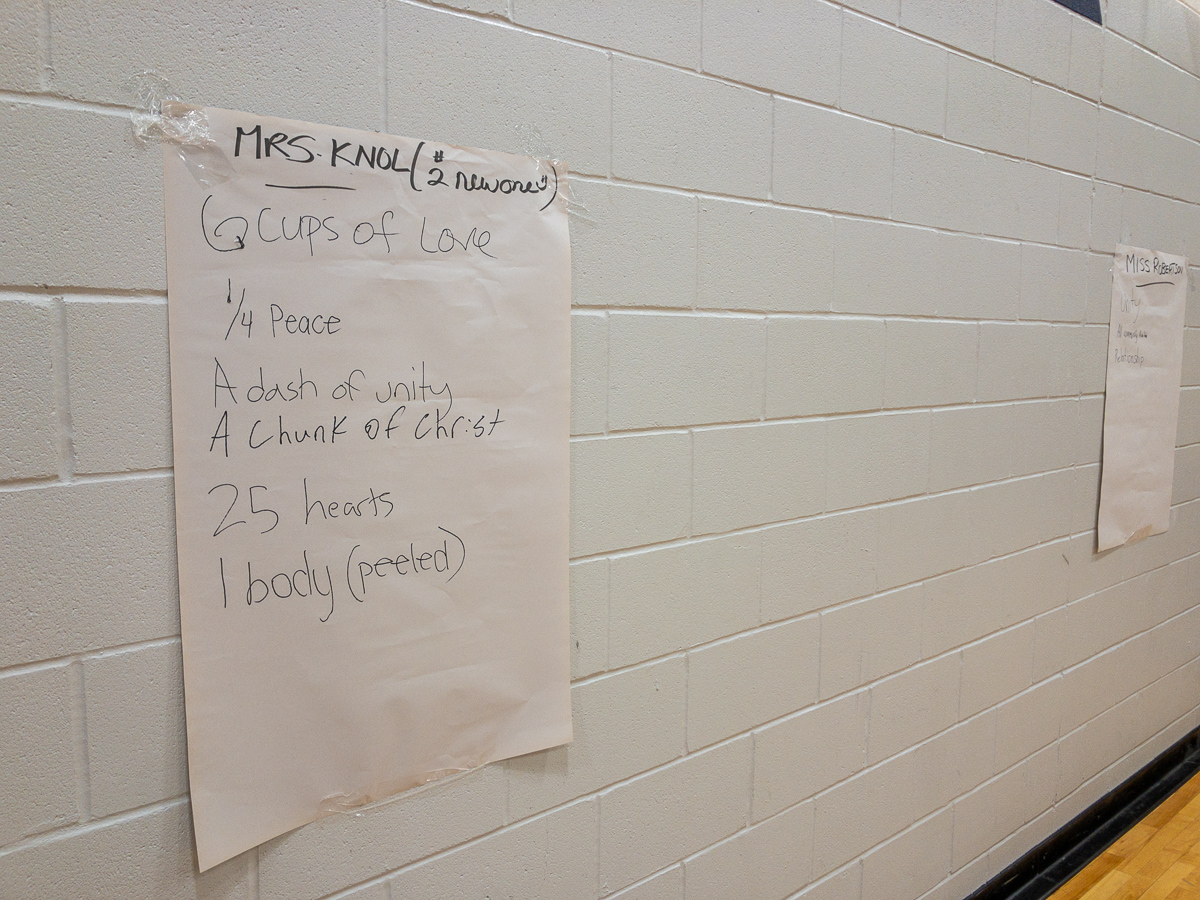 MRS. KNOL (#2 new one")
6 Cups of Love
1/4 Peace
A dash of unity
A Chunk of Christ
25 hearts
1 body (peeled)
MISS ROBERTSON
Relationship